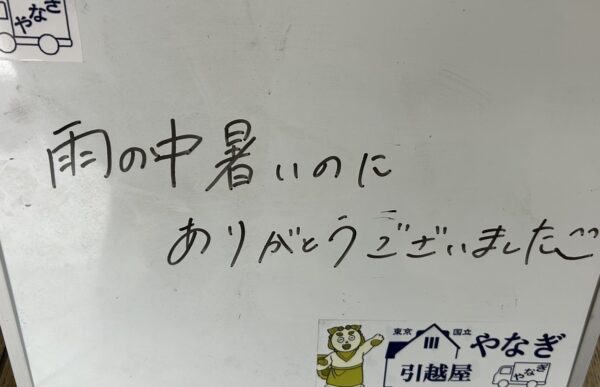 やなぎ
雨の中暑いのに
ありがとうございました
東京 国立
引越屋 やなぎ
やなぎ